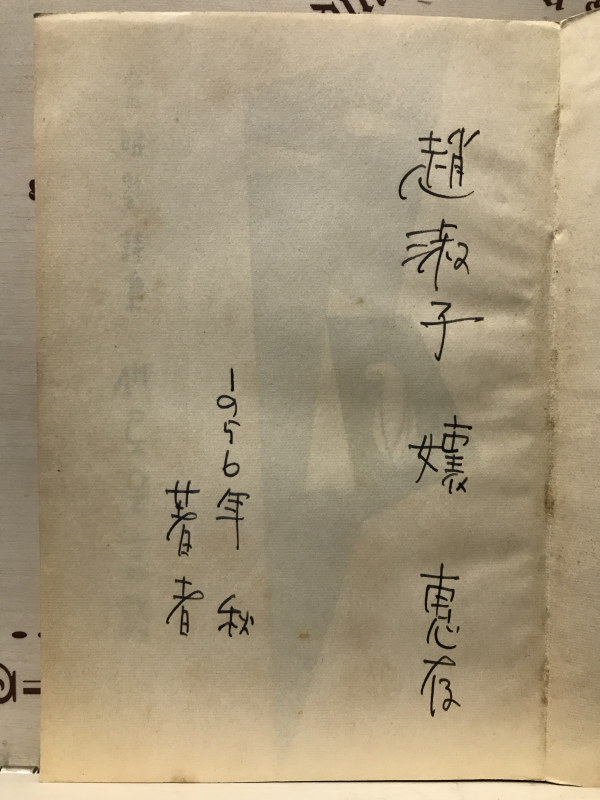 趙淑子 孃 惠存
1956年 秋
著者